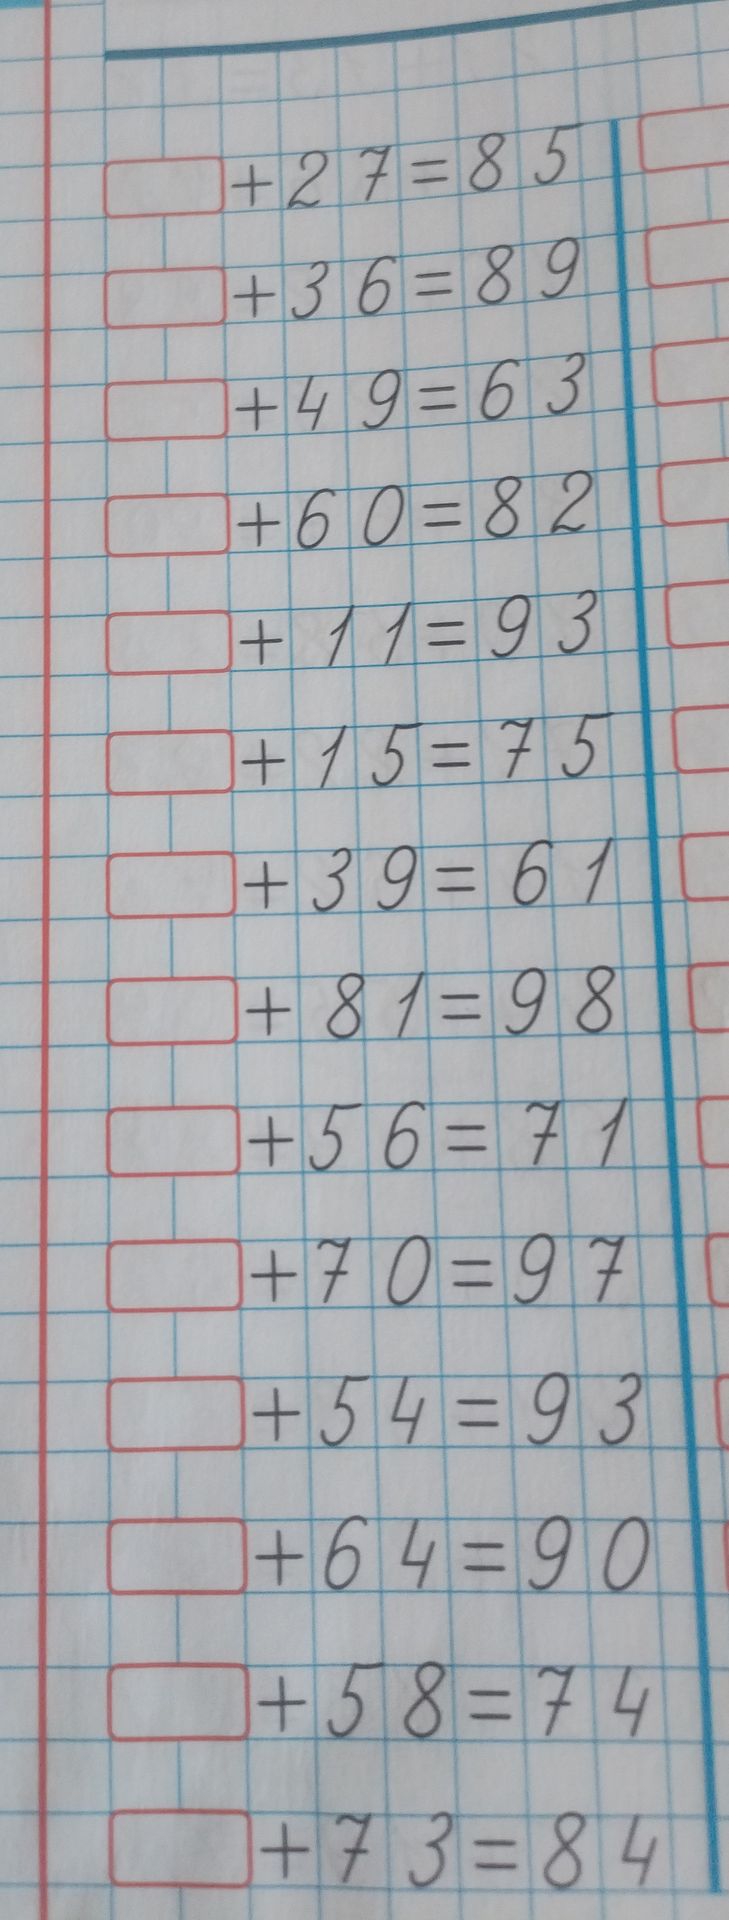 +27=85
+36=89
+49=63
+60=82
+11=93
+15=75
+39=61
+81=98
+56=71
+70=97
+54=93
+64=90
+58=74
+73=84